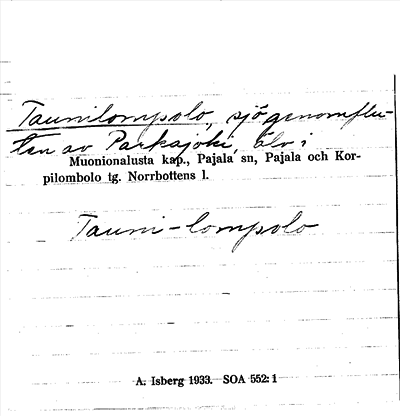 Taunilompolo, sjö genomflu-
ten av Parkajoki, älv i
Muonionalusta kap., Pajala sn, Pajala och Kor-
pilombolo tg. Norrbottens l.
Tauni-lompolo
A. Isberg 1933. SOA 552: 1